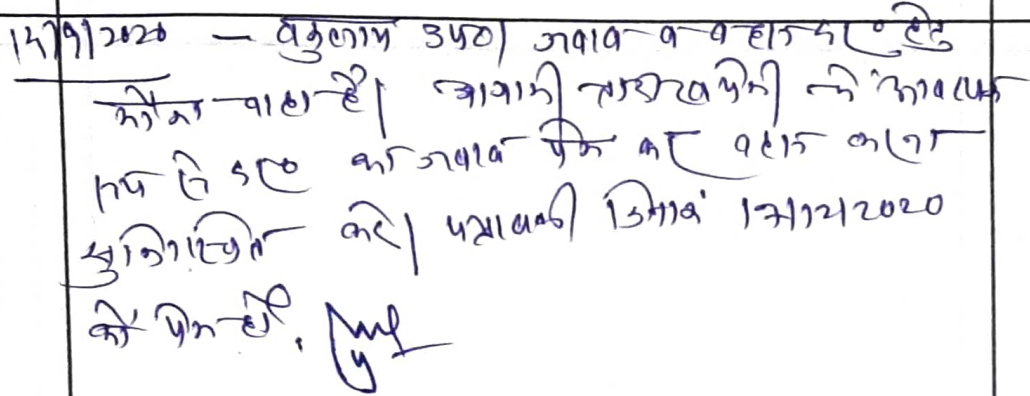 14/9/2020 – वकुलाय उप०। जवाब व बहस हेतु
मौका चाहा है। आगामी तारीख पेशी को आवश्यक
रूप से का जवाब पेश कर बहस करना
सुनिश्चित करे। पत्रावली दिनांक 17/12/2020
को पेश हो।